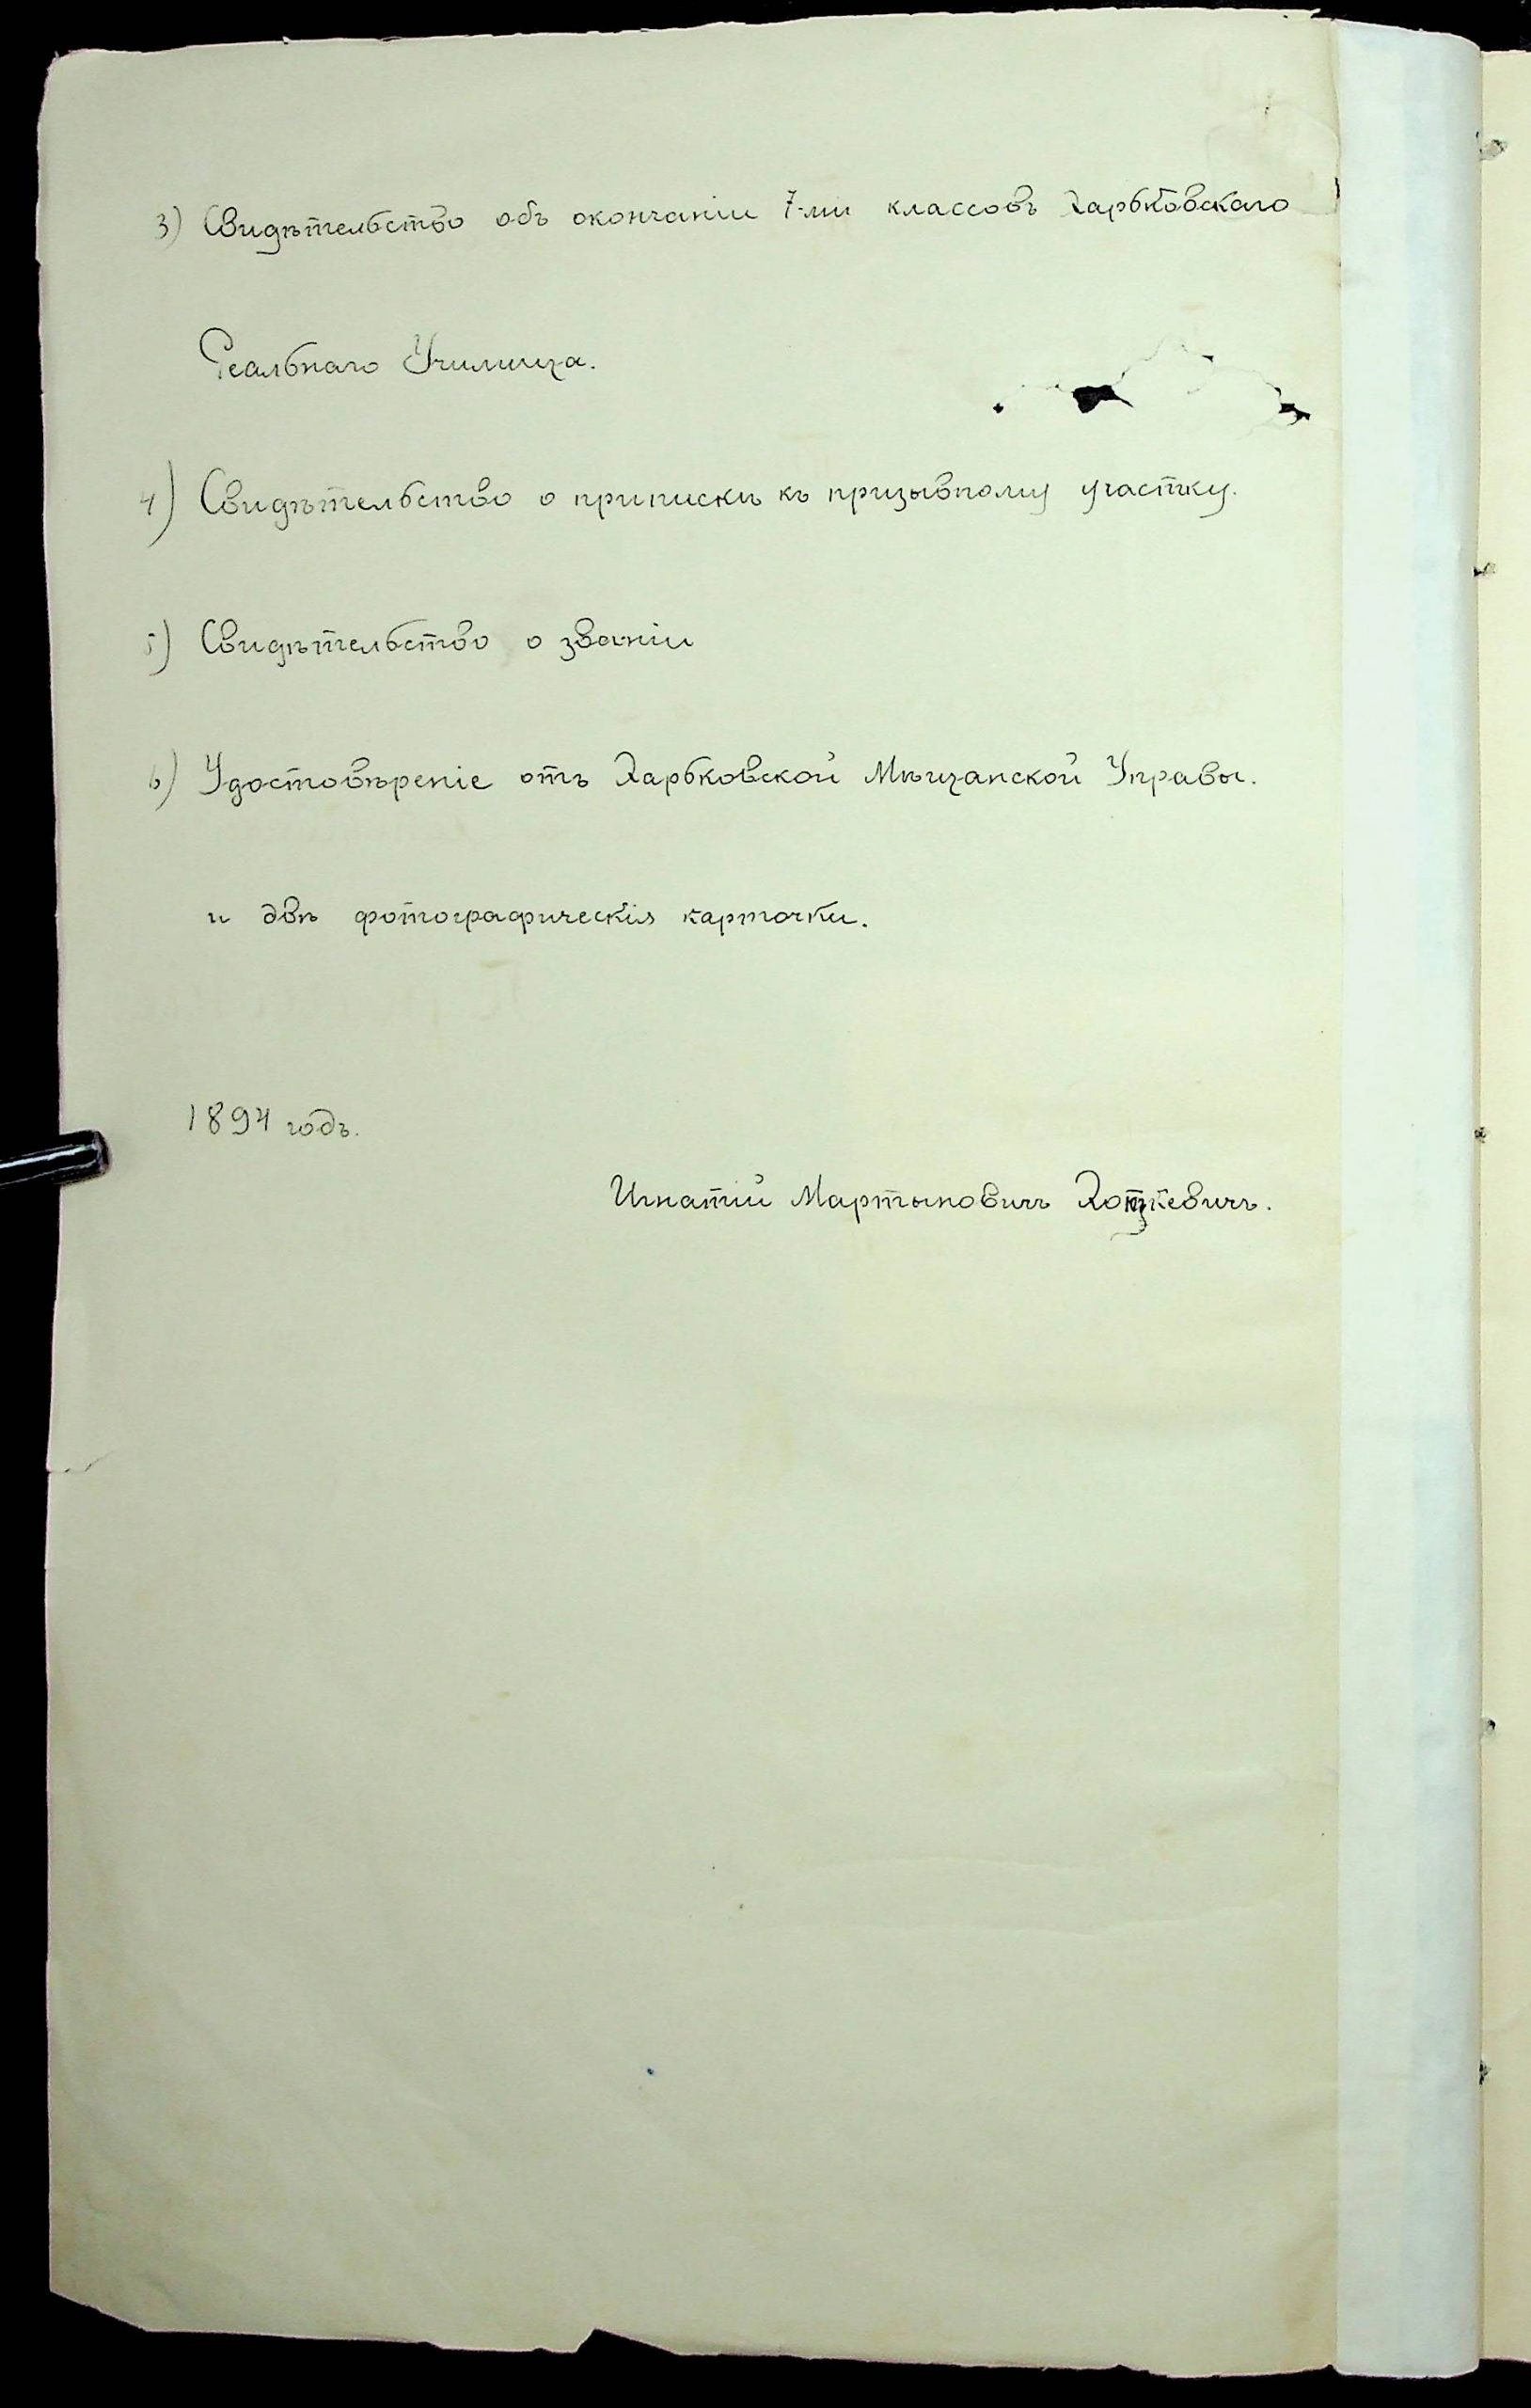 3) Свидѣтельство объ окончаніи 7-ми классовъ Харьковскаго
Реальнаго Училища.
4) Свидѣтельство о припискѣ къ призывному участку.
5) Свидѣтельство о званіи
6) Удостовѣреніе отъ Харьковской Мѣщанской Управы.
и двѣ фотографическія карточки.
1894 годъ.
Игнатій Мартыновичъ Хоткевичъ.